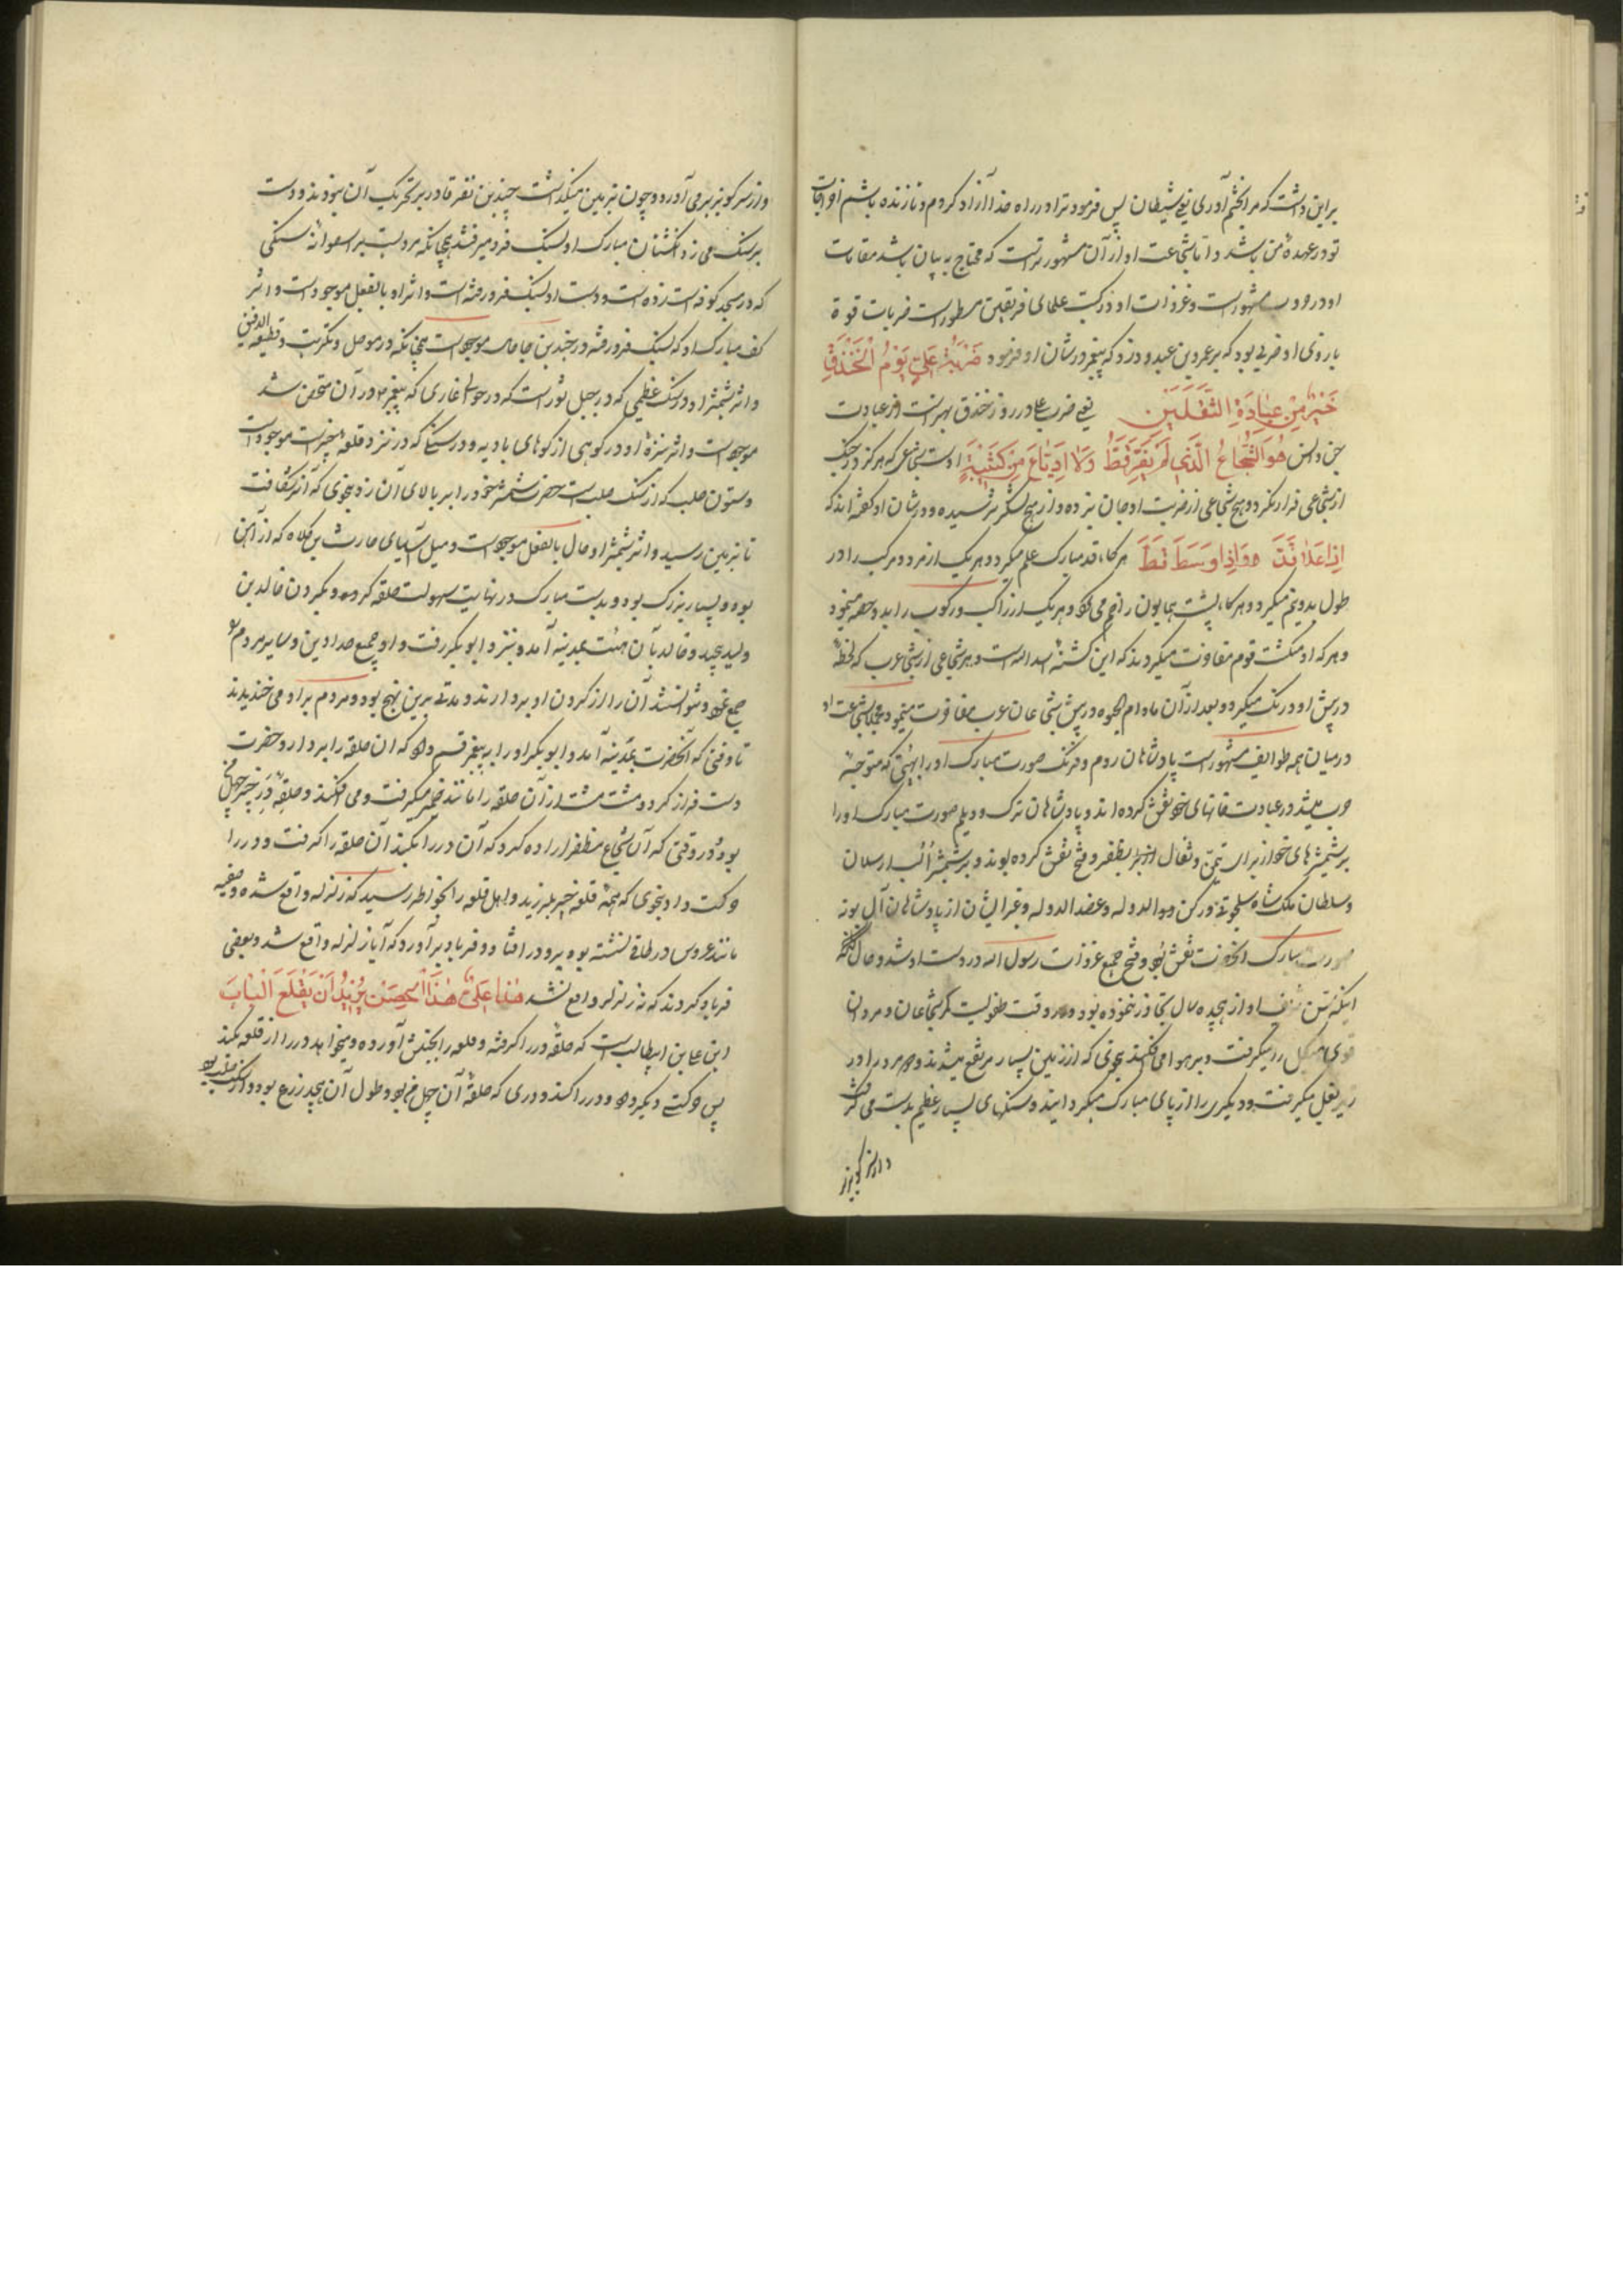 بر این داشت که مرا بخشم آوری یعنی شیطان پس فرمود ترا در راه خدا آزاد کردم و تا زنده باشم اخراجات
تو در عهده من باشد و اما شجاعت او از آن مشهورتر است که محتاج به بیان باشد مقامات
او در حروب مشهور است و غزوات او در کتب علمای فریقین مسطور است ضربات قوة
بازوی او ضربی بود که بر عمرو بن عبدود زد که پیغمبر در شان او فرمود ضَرْبَةُ عَلِيٍّ يَوْمَ الْخَنْدَقِ
خَيْرٌ مِنْ عِبَادَةِ الثَّقَلَيْنِ یعنی ضرب علی در روز خندق بهتر است از عبادت
جن و انس هُوَ الشُّجَاعُ الَّذِي لَمْ يَفِرَّ قَطُّ وَلَا ارْتَاعَ مِنْ كَتِيبَةٍ اوست شجاعی که هرگز در جنگ
از شجاعی فرار نکرد و هیچ شجاعی از ضربت او جان نبرده و از هیچ لشکر نترسیده و در شان او گفته اند که
اِذَا عَلَا قَدَّ وَاِذَا وَسَطَ قَطَّ هرگاه قد مبارک علم میکرد و هر یک از مرد و مرکب را در
طول بدو نیم میکرد و هرگاه پشت همایون را خم می کرد هر یک از راکب و مرکوب را بدو حصه مینمود
و هر که او میکشت قوم مفاخرت میکردند که این کشته اسد الله است و هر شجاعی از شجاعان عرب که لحظه
در پیش او درنگ میکرد و بعد از آن مادام الحیوه در پیش شجاعان عرب مفاخرت مینمود مجملا شجاعت او
در میان همه طوایف مشهور است پادشاهان روم و فرنگ صورت مبارک او را بهیئتی که متوجه
حرب میشد در عبادت خانهای خود نقش کرده اند و پادشاهان ترک و دیلم صورت مبارک او را
بر شمشیرهای خود از برای تیمن و تفال از برای ظفر و فتح نقش کرده بودند و بر شمشیر الب ارسلان
و سلطان ملک شاه سلجوقی و رکن الدوله و عضد الدوله و غیر ایشان از پادشاهان آل بویه
صورت مبارک آنحضرت نقش بود و فتح جمیع غزوات رسول الله در دست او شد و حال آنکه
اینکه سن شریف او از هیجده سال تجاوز ننموده بود و در وقت طفولیت کمر شجاعان و مردان
قوی هیکل را میگرفت و بر هوا می افکند بنحوی که از زمین بسیار مرتفع میشدند و هر دو مرد را در
زیر بغل میگرفت و دیگری را از پای مبارک میگردانید و سنگهای بسیار عظیم بدست می گرفت
و از سر کوه بزیر
و از سر کوه بزیر می آورد و چون بزمین میگذاشت چندین نفر قادر بر تحریک آن نبودند و دست
بر سنگ می زد انگشتان مبارک او بسنگ فرو میرفت چنانچه مرویست بر اسطوانه سنگی
که در مسجد کوفه است زده است و دست او بسنگ فرو رفته است و اثر او بالفعل موجود است و اثر
کف مبارک او که بسنگ فرو رفته در چندین جا حالا موجود است چنانکه در موصل و تکریت و قطیعه الدقیق
و اثر شمشیر او در سنگ عظیمی که در جبل ثور است که در حوالی غاری که پیغمبر در آن متحصن شد
موجود است و اثر نیزه او در کوهی از کوهای بادیه و در سنگی که در نزد قلعه خیبر است موجود است
و ستون صلب که از سنگ صلب است حضرت شمشیر خود را بر بالای آن زد بنحوی که آنرا شکافت
تا بزمین رسید و اثر شمشیر او حال بالفعل موجود است و میل آسیای حارث بن کلده که از آهن
بود و بسیار بزرگ بود و بدست مبارک در نهایت سهولت حلقه کرده و بگردن خالد بن
ولید پیچید و خالد بآن هیئت بمدینه آمد و بنزد ابو بکر رفت و او جمیع حدادین و سایر مردم را
جمع نمود و نتوانستند آن را از گردن او بردارند و مدتی برین نهج بود و مردم بر او می خندیدند
تا وقتی که آنحضرت بمدینه آمد و ابو بکر او را به پیغمبر قسم داد که آن حلقه را بردارد و حضرت
دست فراز کرد و مشت مشت از آن حلقه را مانند خمیر میگرفت و می افکند و حلقه در خیبر چهل من
بود و در وقتی که آن شجاع مظفر اراده کرد که آن در را بکند آن حلقه را گرفت و در را
حرکت داد بنحوی که همه قلعه خیبر بلرزید و اهل قلعه را بخاطر رسید که زلزله واقع شده و صفیه
مانند عروس در طاقی نشسته بود برو در افتاد و فریاد برآورد که آیا زلزله واقع شد و بعضی
فریاد کردند که نه زلزله واقع نشد هٰذَا عَلِيٌّ هَزَّ الْحِصْنَ يُرِيدُ اَنْ يَقْلَعَ الْبَابَ
این علی بن ابیطالب است که حلقه در را گرفته و قلعه را بجنبش آورده و میخواهد در را از قلعه بکند
پس حرکتی دیگر داد و در را کند و دری که حلقه آن چهل من بود و طول آن هیجده زرع بود و از سنگ صلب بود